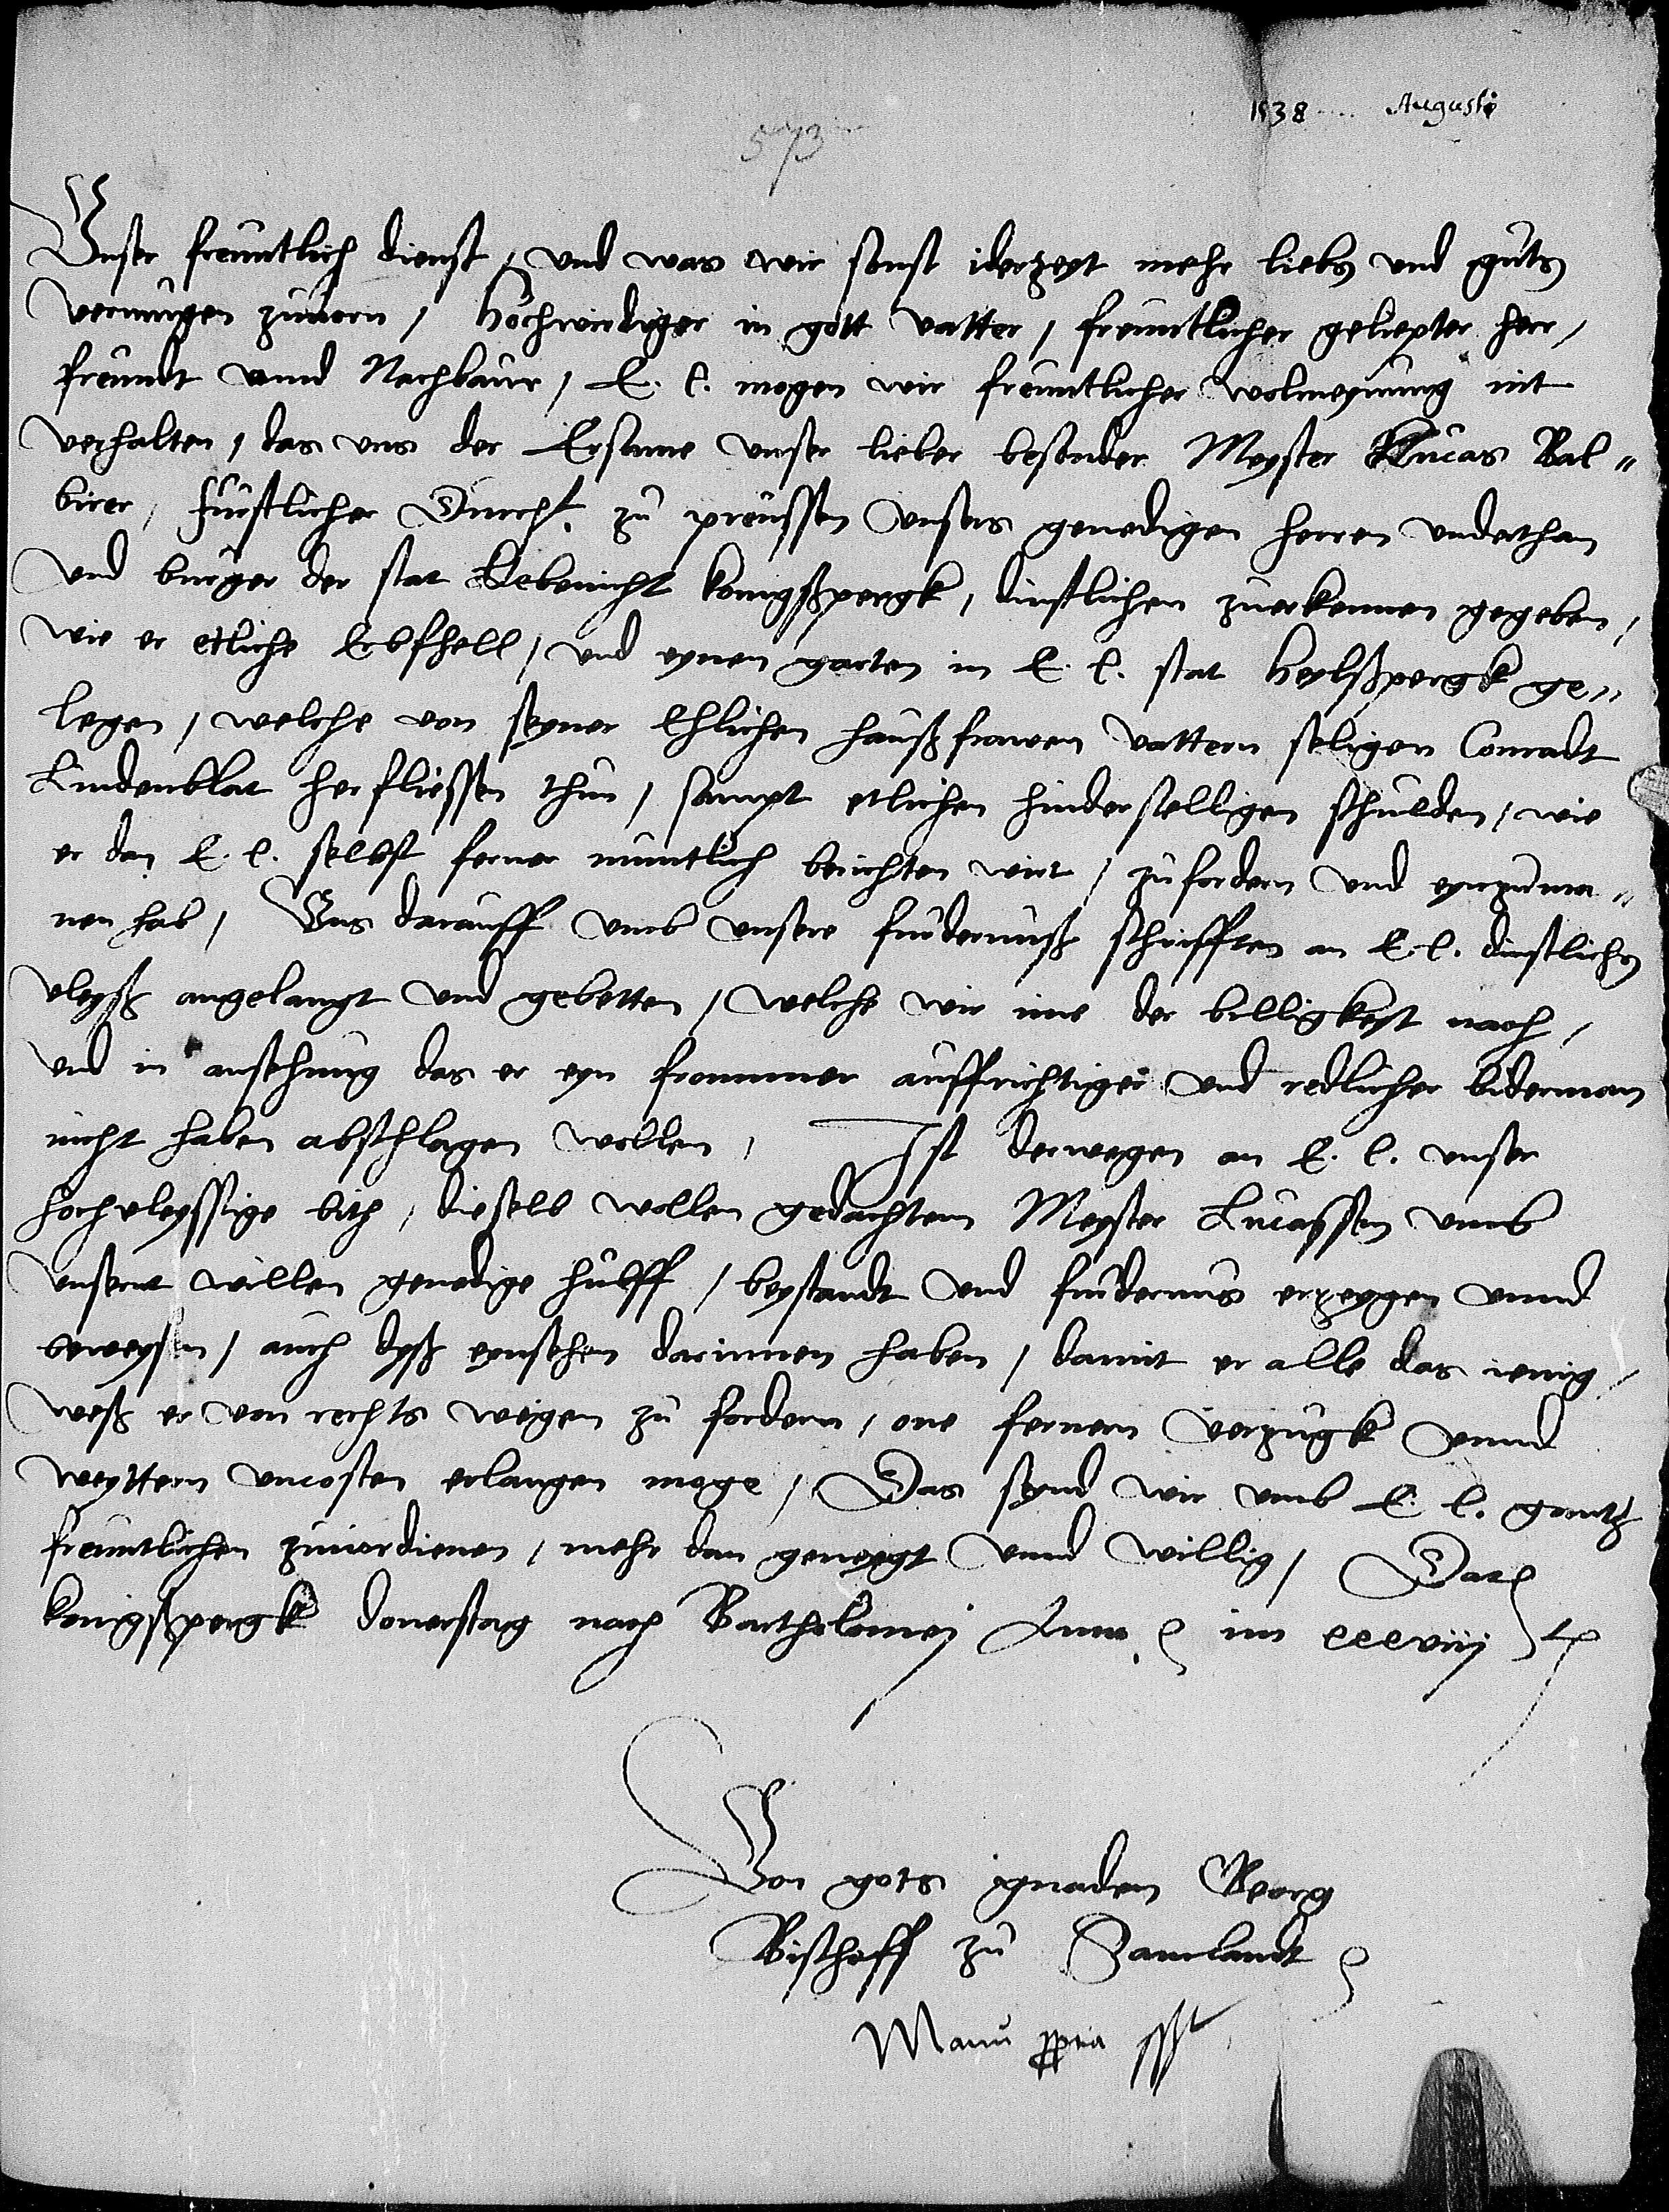 1538 Augusti
573
Unser freuntlich dienst, und was wir sonst iderzeyt mehr liebs und guts
vermugen zuuorn, Hochwirdiger in gott vatter, freuntlicher geliepter herr,
freundt unnd Nachbaur, E. l. mogen wir freuntlicher wolmeynung nit
verhalten, das uns der Ersame unser lieber besonder Meyster Lucas Bal-
birer, furstlicher Durchl. zu preussen unsers genedigen herren underthan
und burger der stat Lebenicht konigßpergk, dinstlichen zuerkennen gegeben,
wie er etliche Erbfhell, und eynen garten in E. l. stat Heylßpergk ge-
legen, welche von seyner Ehlichen haußfrawen vattern seligen Conradt
Lindenblat herfliessen thun, sampt etlichen hinderstelligen schulden, wie
er dan E. l. selbst ferner muntlich berichten wirt, zufordern und eynzuma-
nen hab, Uns darauff umb unsere furdernuß schrifften an E. l. dinstliches
vleyß angelangt und gebetten, welche wir ime der billigkeyt nach,
und in ansehung das er eyn frommer auffrichtiger und redlicher biderman
nicht haben abschlagen wollen, Ist derwegen an E. l. unser
hochvleyssige bith, dieselb wollen gedachtem Meyster Lucassen umb
unsernt willen genedige hulff, beystandt und furdernus erzeygen unnd
beweysen, auch dyß eynsehen darinnen haben, damit er alle das ienig,
weß er von rechts wegen zu fordern, one fernern verzugk unnd
weyttern uncosten erlangen moge, Das seynd wir umb E. l. gantz
freuntlichen zuuordienen, mehr dan geneygt unnd willig, Dat
konigßpergk donerstag nach Bartholomej Anno im xxxviij
Von gots gnaden Georg
Bischoff zu Samlandt
Manu ppria sst